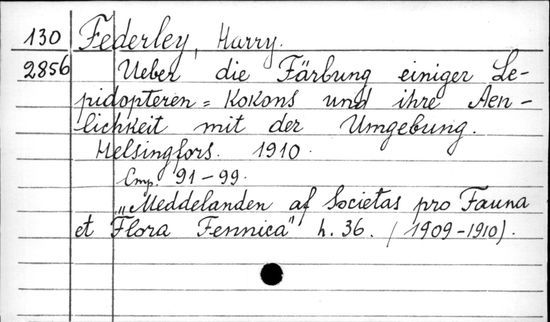 130 Federley, Harry.
2856 Ueber die Färbung einiger Le-
pidopteren = Kokons und ihre Aen-
lichkeit mit der Umgebung.
Helsingfors. 1910.
Cmp. 91-99.
„Meddelanden af Societas pro Fauna
et Flora Fennica" h. 36. (1909-1910).